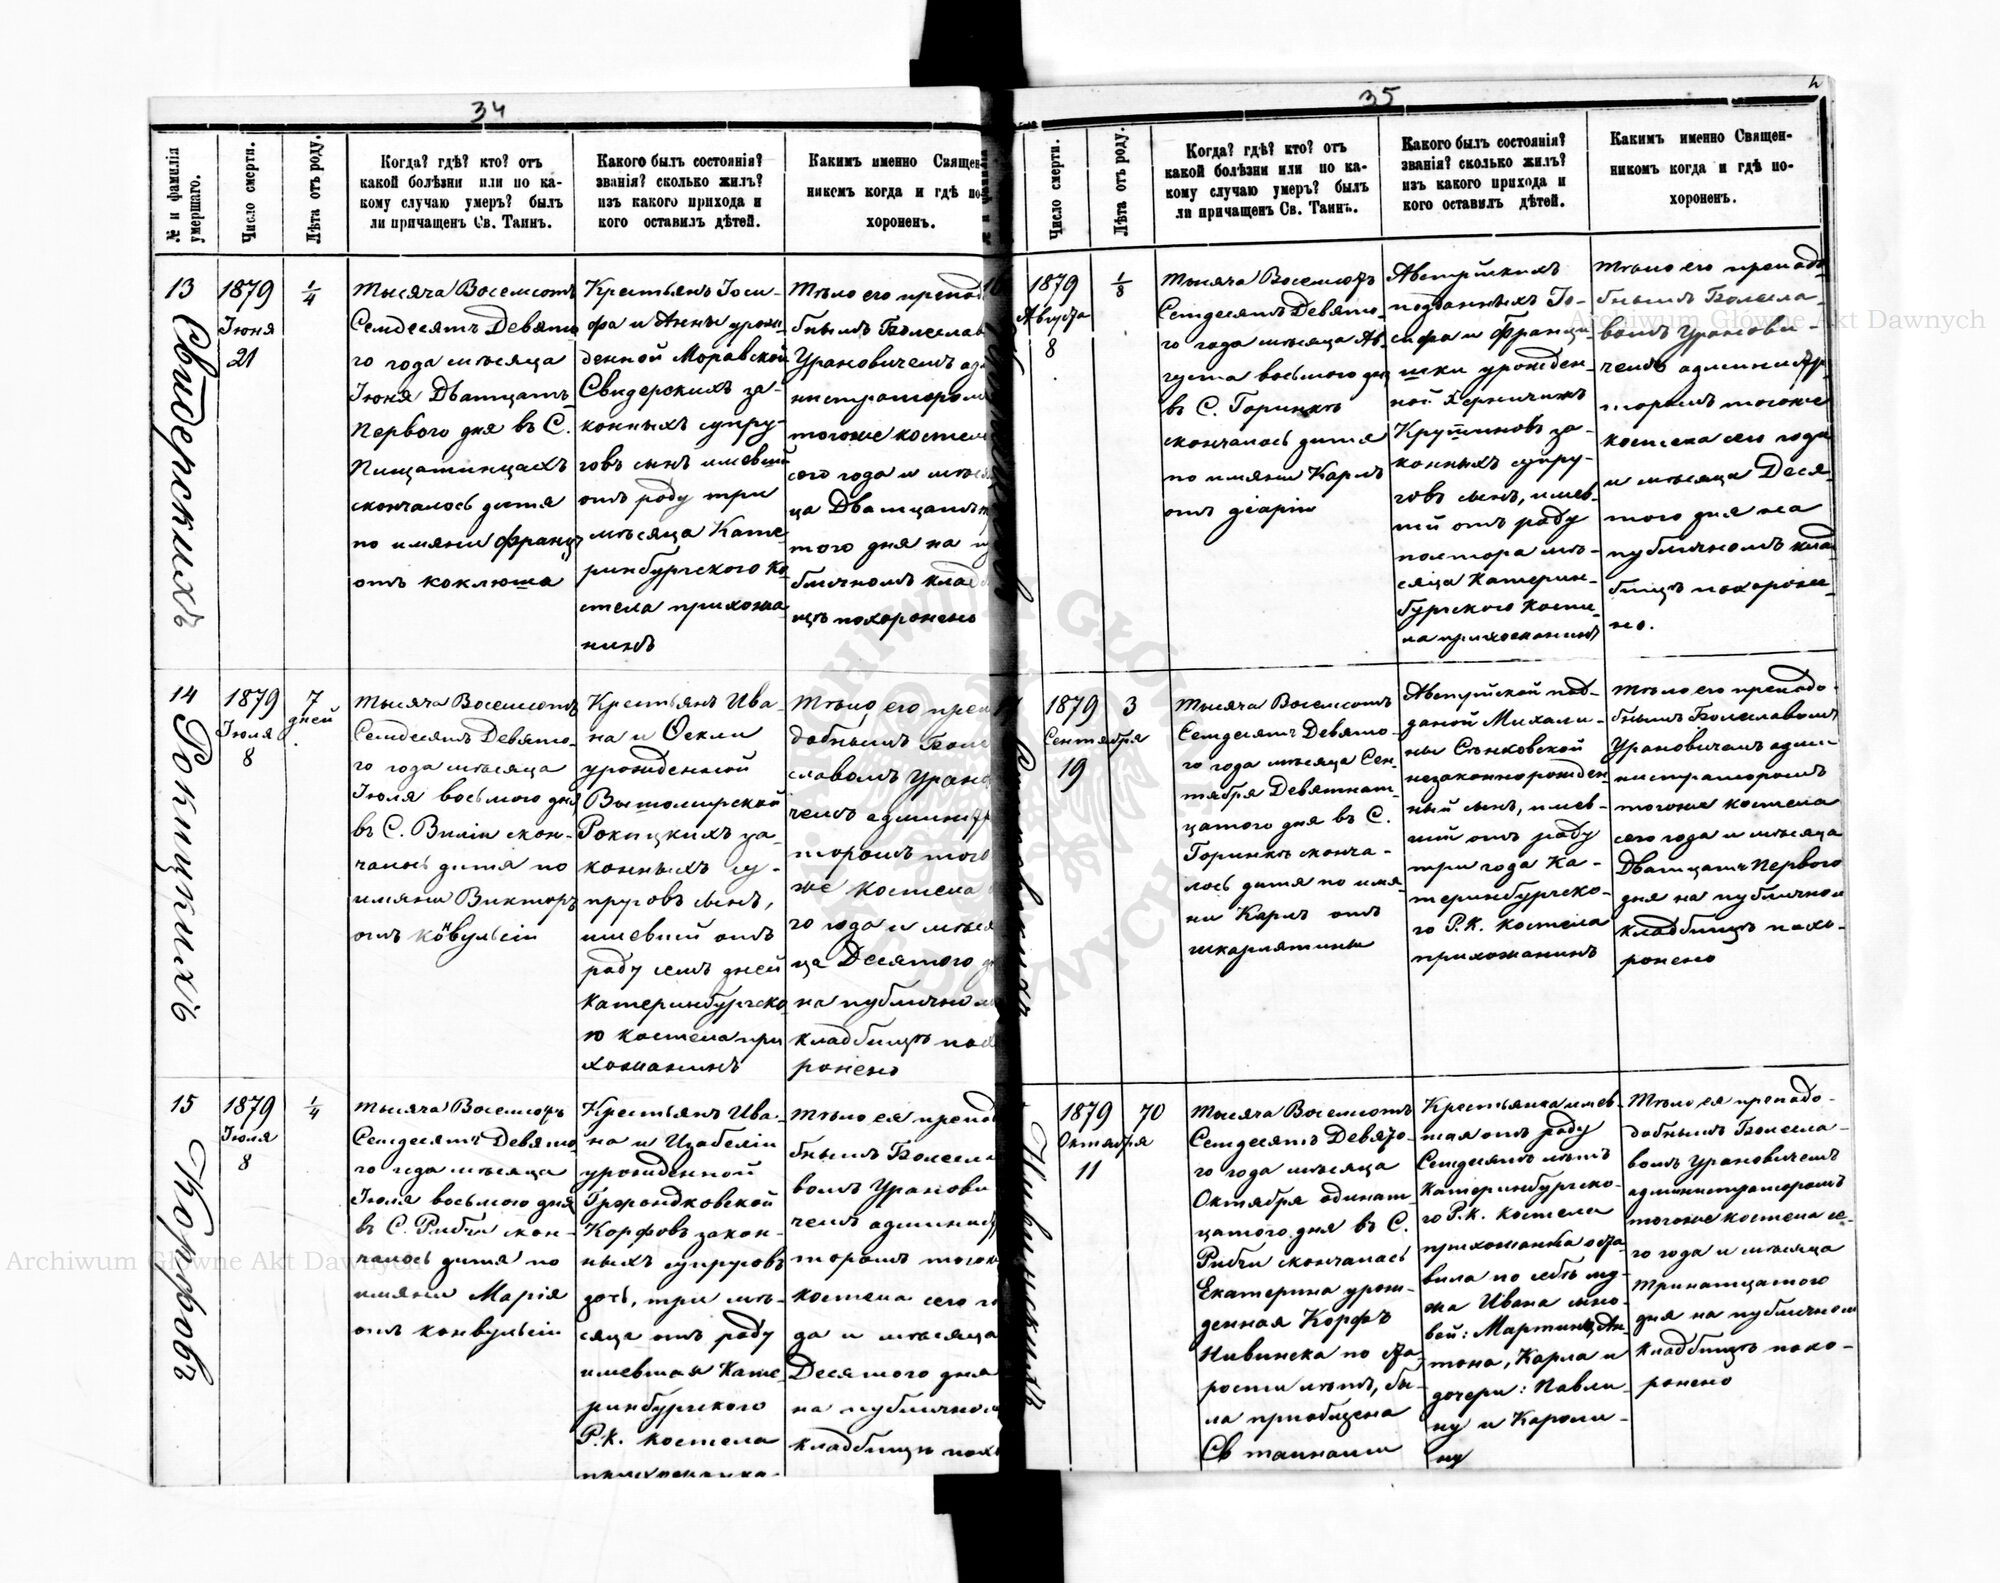 34
№ и фамилія умершаго.
Число смерти.
Лѣта отъ роду.
Когда? гдѣ? кто? отъ
какой болѣзни или по ка-
кому случаю умеръ? былъ
ли причащенъ Св. Таинъ.
Какого былъ состоянія?
званія? сколько жилъ?
изъ какого прихода и
кого оставилъ дѣтей.
Каким именно Священ-
никомъ когда и гдѣ по-
хороненъ.
13
Свидерскихъ
1879
Іюня
21
1/4
Тысяча Восемсотъ
Семдесятъ Девято
го года мѣсяца
Іюня Двадцать
Первого дня въ С.
Пищатинцахъ
скончалось дитя
по имяни Францъ
отъ коклюша
Крестьянъ Іоси-
фа и Анны урож-
денной Моравской
Свидерскихъ за-
конныхъ супру-
говъ сынъ имевшій
отъ роду три
мѣсяца Кате
ринбургского ко
стела прихожа
нинъ
Тѣло его препод
бнымъ Болеслав
Урановичемъ ад
нистраторомъ
тогоже костел
сего года и мѣся
ца Двадцать
того дня на пу
бличномъ клад
ищѣ похоронено
14
Рокицкихъ
1879
Іюля
8
7
дней
Тысяча Восемсотъ
Семдесятъ Девято-
го года мѣсяца
Іюля восьмого дня
въ С. Виліи скон-
чалось дитя по
имяни Викторъ
отъ кōвульсіи
Крестьянъ Ива-
на и Феклы
урожденной
Рокицкихъ за-
конныхъ су-
пруговъ сынъ,
имевшій отъ
роду семь дней
Катеринбургско
го костела при
хожанинъ
Тѣло его преп
добнымъ Боле
славомъ Урано
чемъ админист
торомъ того
же костела
го года и мѣся
ца Десятого д
на публичном
кладбищѣ похо
ронено
15
Корфовъ
1879
Іюля
8
1/4
Тысяча Восемсотъ
Семдесятъ Девято
го года мѣсяца
Іюля восьмого дня
въ С. Рибчи скон-
чалось дитя по
имяни Марія
отъ конвульсіи
Крестьянъ Ива-
на и Изабеліи
урожденной
Корфовъ закон-
ныхъ супруговъ
дочь, три мѣ-
сяца отъ роду
имевшая Кате-
ринбургского
Р.К. костела
прихожанка.
Тѣло ея препод
бнымъ Болесла
вомъ Уранови
чемъ админист
торомъ тогож
костела сего го
да и мѣсяца
Десятого дня
на публичном
кладбищѣ похо
35
Число смерти.
Лѣта отъ роду.
Когда? гдѣ? кто? отъ
какой болѣзни или по ка-
кому случаю умеръ? былъ
ли причащенъ Св. Таинъ.
Какого былъ состоянія?
званія? сколько жилъ?
изъ какого прихода и
кого оставилъ дѣтей.
Какимъ именно Священ-
никомъ когда и гдѣ по-
хороненъ.
16
1879
Августа
8
1/8
Тысяча Восемсотъ
Семдесятъ Девято-
го года мѣсяца Ав-
густа восьмого дня
въ С. Горинкѣ
скончалось дитя
по имяни Карлъ
отъ діаріи
Австрійскихъ
подданныхъ Іо-
сифа и Франци
шки урожден-
ной
за-
конныхъ супру-
говъ сынъ, имев-
шій отъ роду
полтора мѣ-
сяца Катерин-
бургского Косте-
ла прихожанинъ
Тѣло его преподо
бнымъ Болесла-
вомъ Уранови-
чемъ администр
торомъ тогоже
костела сего года
и мѣсяца Деся-
того дня на
публичномъ клад
бищѣ похороне-
но.
1879
Сентября
19
3
Тысяча Восемсотъ
Семдесятъ Девято-
го года мѣсяца Сен-
тября Девятнат-
цатого дня въ С.
Горинкѣ сконча-
лось дитя по имя-
ни Карлъ отъ
шкарлятины
Австрійской под-
даной Михали-
ны Стѣнковской
незаконнорожден-
ный сынъ, имев-
шій отъ роду
три года Ка-
теринбургско-
го Р.К. костела
прихожанинъ
Тѣло его преподо-
бнымъ Болеславомъ
Урановичемъ адми-
нистраторомъ
тогоже костела
сего года и мѣсяца
Двадцать Первого
дня на публичном
кладбищѣ похо-
ронено
Нивинскихъ
1879
Октября
11
70
Тысяча Восемсотъ
Семдесятъ Девято-
го года мѣсяца
Октября одинат
цатого дня въ С.
Рибчи скончалась
Екатерина урож-
денная Корфъ
Нивинска по ста-
рости лѣтъ, бы-
ла приобщена
Св таинами
Крестьянка имев-
шая отъ роду
Семдесятъ лѣтъ
Катеринбургско-
го Р.К. костела
прихожанка оста-
вила по себѣ му-
жа Ивана сыно-
вей: Мартина, Ан-
тона, Карла и
дочери: Павли-
ну и Кароли-
ну
Тѣло ея преподо-
добнымъ Болесла-
вомъ Урановичемъ
администраторомъ
тогоже костела се-
го года и мѣсяца
Тринатцатого
дня на публичном
кладбищѣ похо-
ронено
Archiwum Główne Akt Dawnych
Archiwum Główne Akt Dawnych